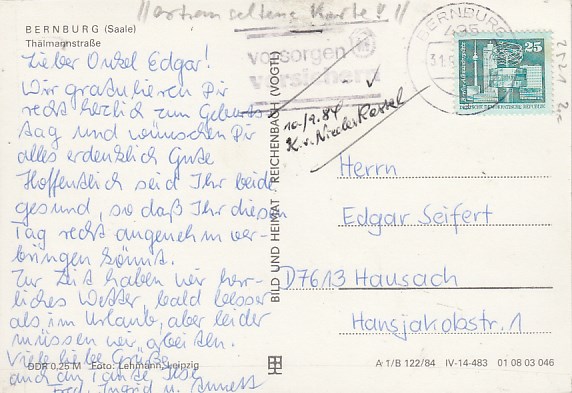 //extrem seltene Karte!!//
BERNBURG (Saale)
Thälmannstraße
Lieber Onkel Edgar!
Wir gratulieren Dir
recht herzlich zum Geburts-
tag und wünschen Dir
alles erdenklich Gute
Hoffentlich seid Ihr beide
gesund, so daß Ihr diesen
Tag recht angenehm ver-
bringen könnt.
Zur Zeit haben wir herr-
liches Wetter, bald besser
als im Urlaub, aber leider
müssen wir arbeiten.
Viele liebe Grüße
auch an Tante Ilse
Fred, Ingrid u. Annett
DDR 0,25 M Foto: Lehmann, Leipzig
BILD UND HEIMAT REICHENBACH (VOGTL)
vorsorgen
versichern
BERNBURG
435
25
10/9.84
K. v.
Herrn
Edgar Seifert
D7613 Hausach
Hansjakobstr. 1
A 1/B 122/84 IV-14-483 01 08 03 046